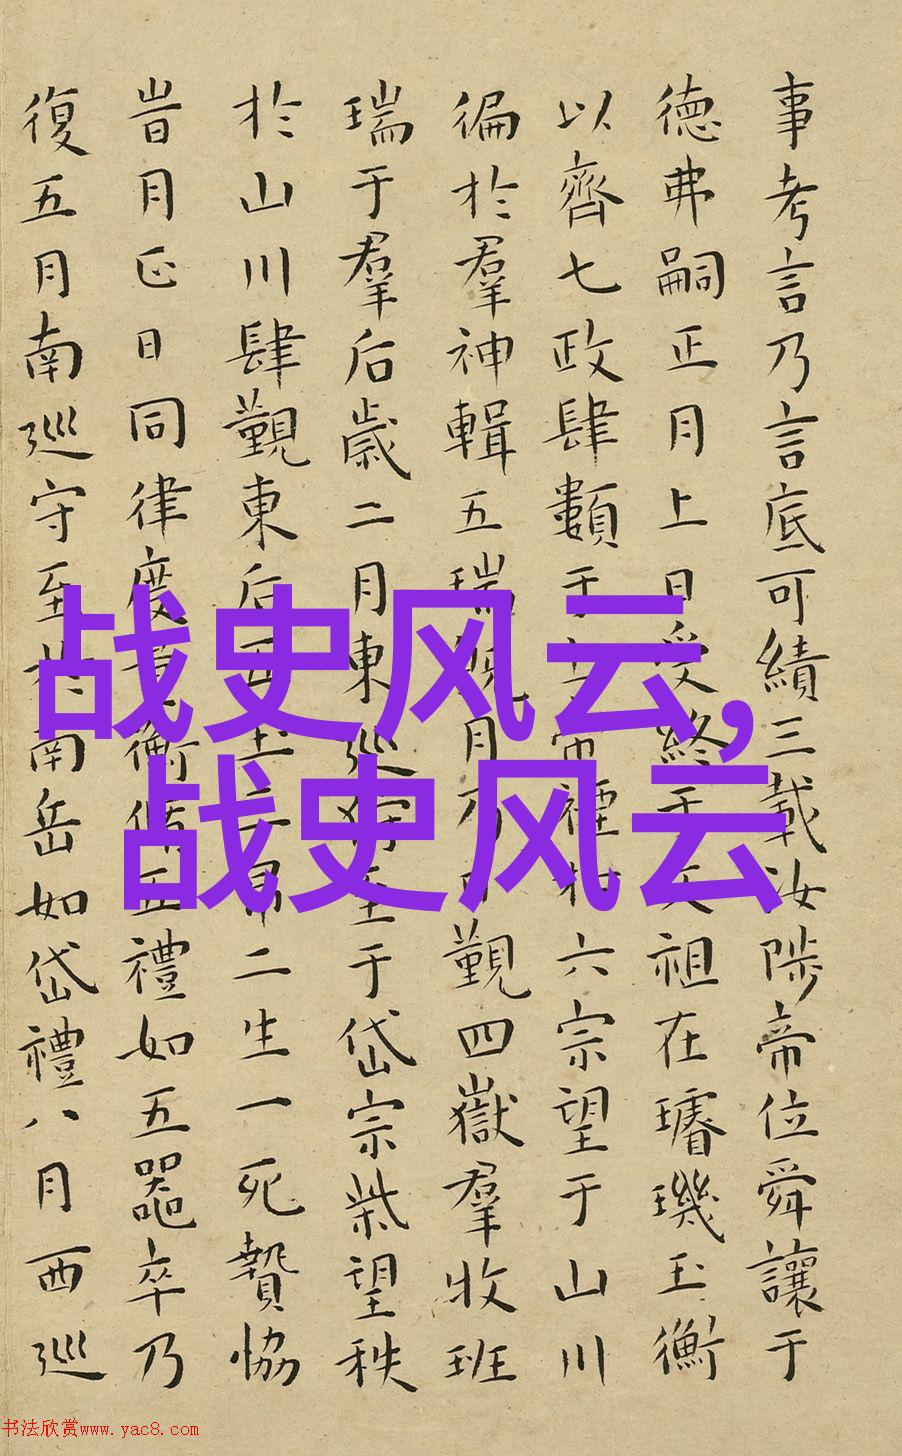 事考言乃言底可績三載汝陟帝位舜讓于
德弗嗣正月上日受終于文祖在璿璣玉衡
以齊七政肆類于上帝禋于六宗望于山川
徧於羣神輯五瑞旣月乃日覲四嶽羣牧班
瑞于羣后歲二月東巡守至于岱宗柴望秩
於山川肆覲東后五玉三帛二生一死贄協
旹月正日同律度量衡脩五禮如五器卒乃
復五月南巡守至於南岳如岱禮八月西巡
战史风云,
战史风云
书法欣赏www.yac8.com